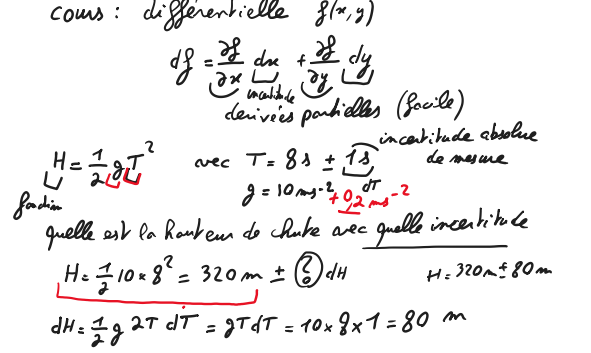 cours : différentielle f(x,y)
df = ∂f/∂x dx + ∂f/∂y dy
incertitude
derivées partielles (facile)
H = 1/2 g T² avec T = 8 s ± 1 s incertitude absolue de mesure
fonction g = 10 ms⁻² ± 0,2 ms⁻² dT
quelle est la hauteur de chute avec quelle incertitude
H = 1/2 10 × 8² = 320 m ± ? dH H = 320 m ± 80 m
dH = 1/2 g 2T dT = gT dT = 10 × 8 × 1 = 80 m